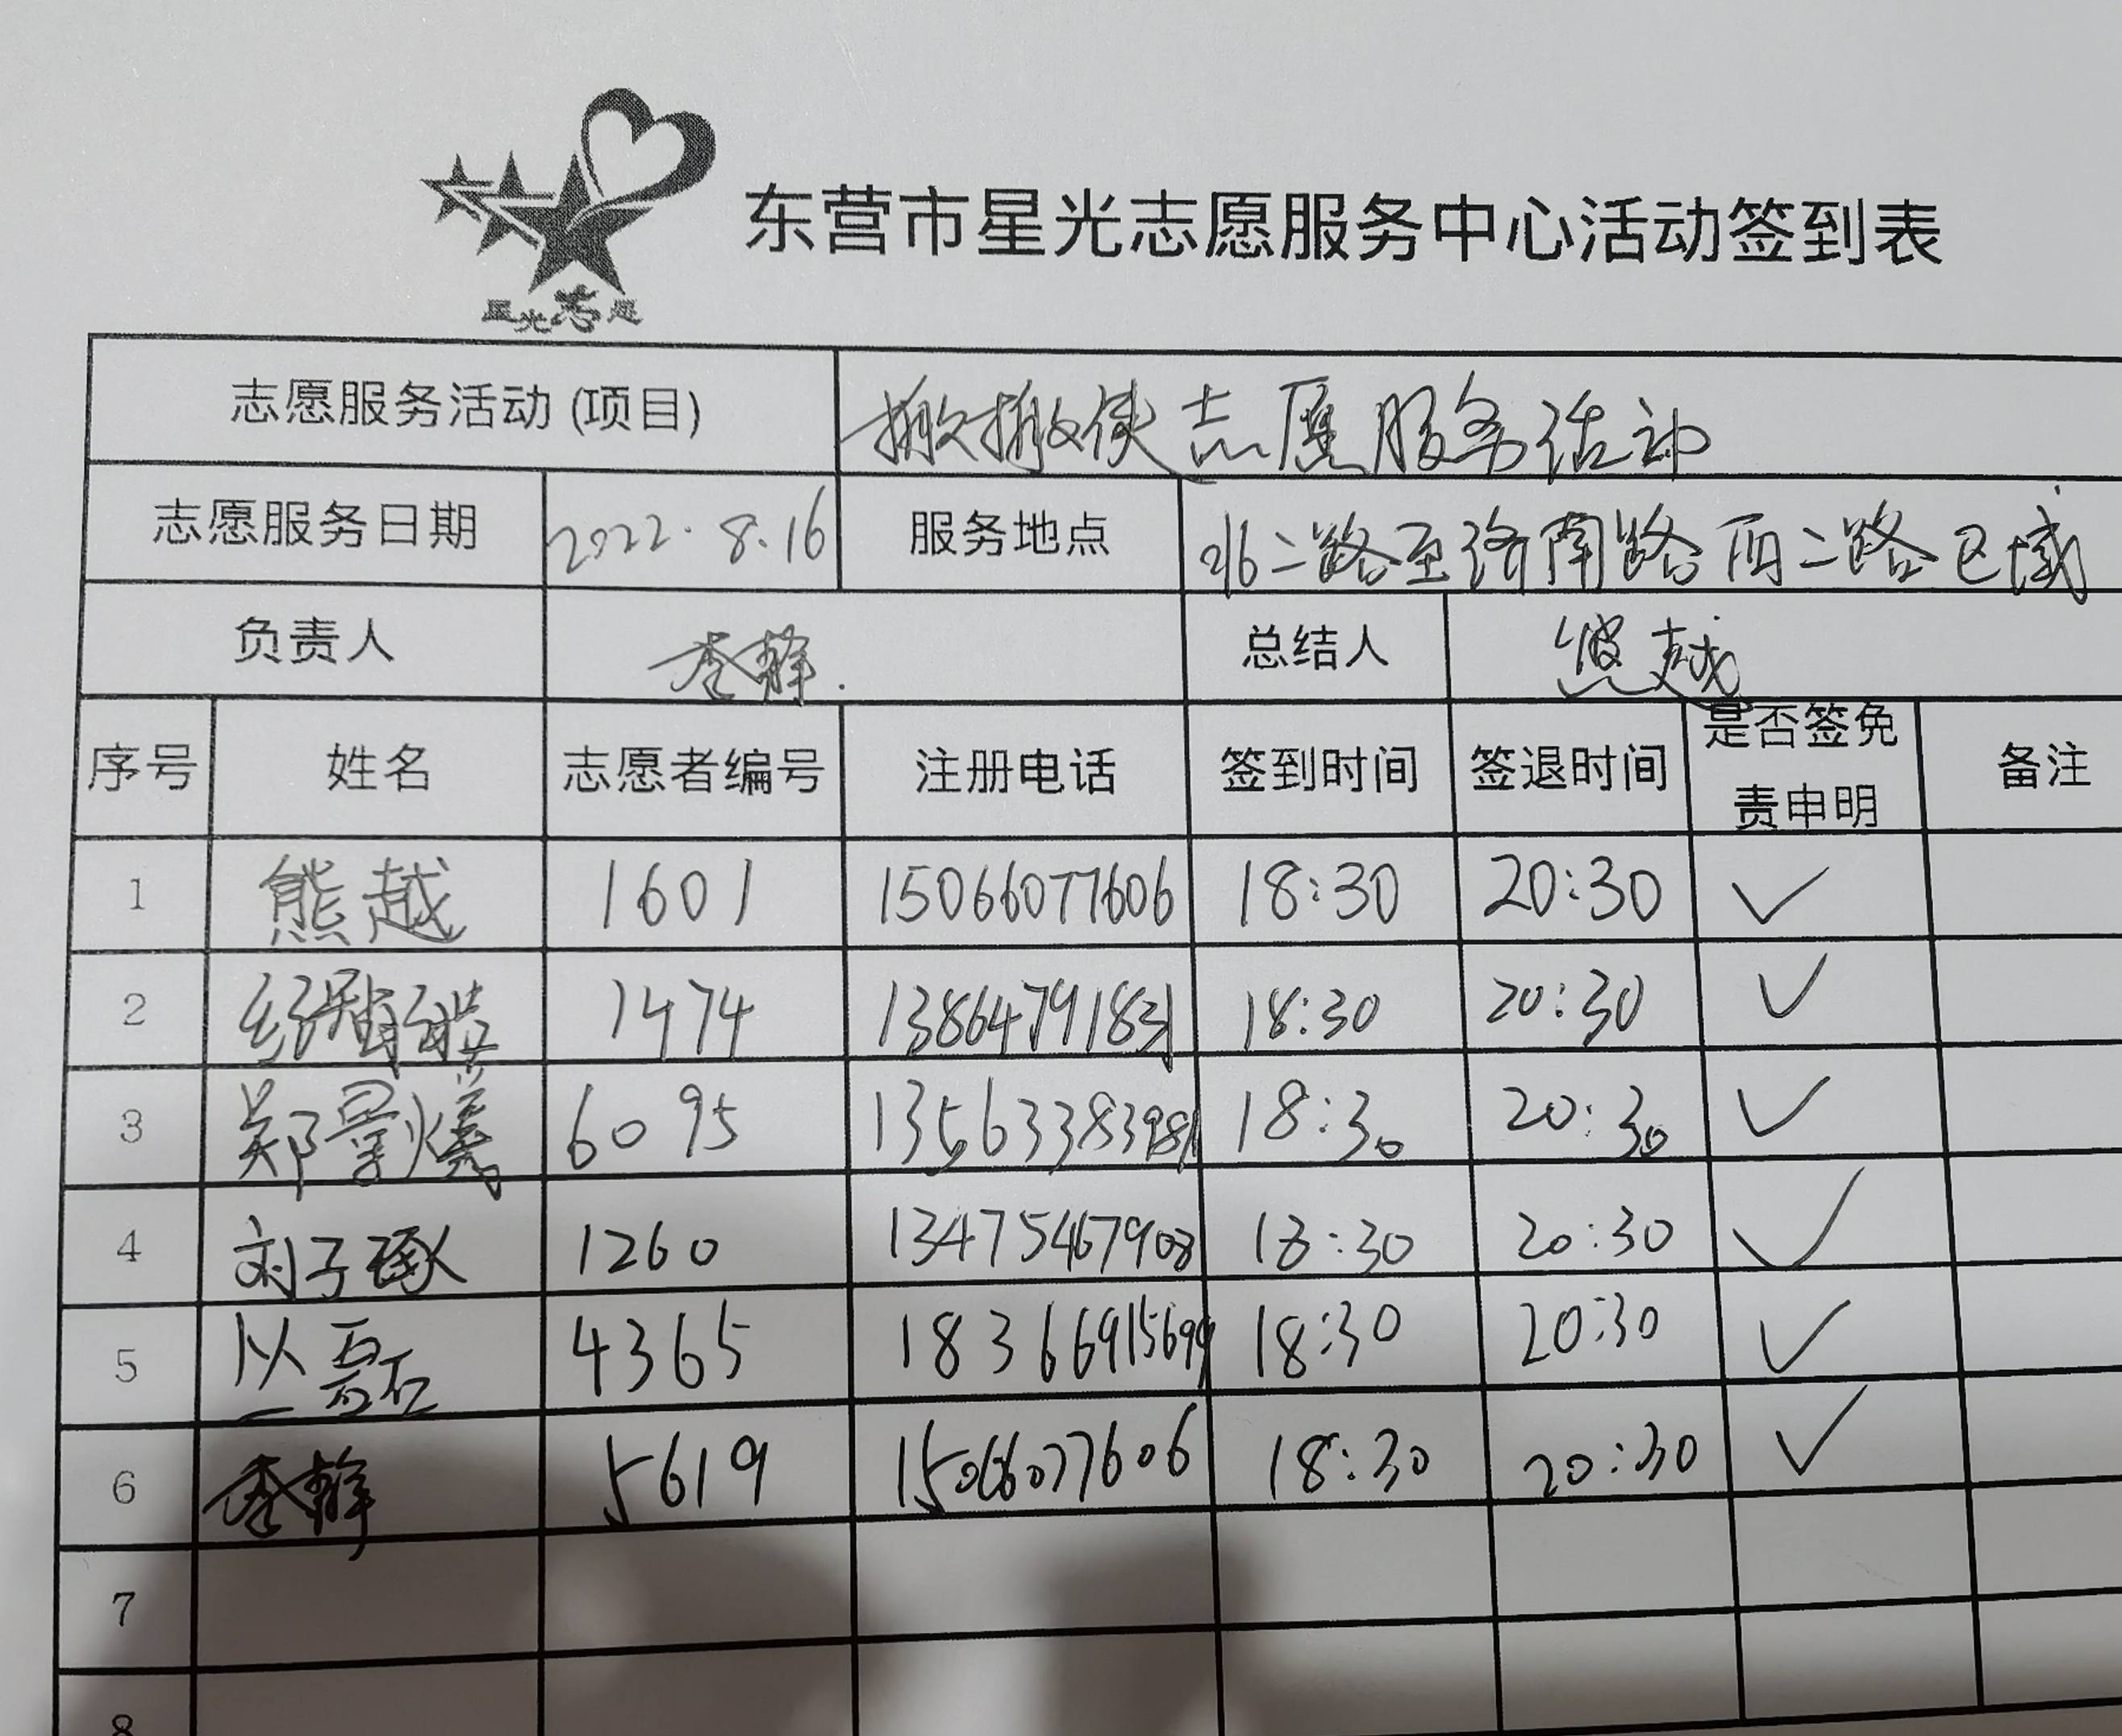 星光志愿
东营市星光志愿服务中心活动签到表
志愿服务活动 (项目) 搬搬侠志愿服务活动
志愿服务日期 2022.8.16 服务地点 北二路至济南路西二路区域
负责人 李静. 总结人 熊越
序号 姓名 志愿者编号 注册电话 签到时间 签退时间 是否签免责申明 备注
1 熊越 1601 15066077606 18:30 20:30 ✓
2 1474 13864791831 18:30 20:30 ✓
3 郑景曦 6095 13563383981 18:30 20:30 ✓
4 刘子琢 1260 13475467908 18:30 20:30 ✓
5 丛磊 4365 18366915699 18:30 20:30 ✓
6 李静 5619 15066077606 18:30 20:30 ✓
7
8